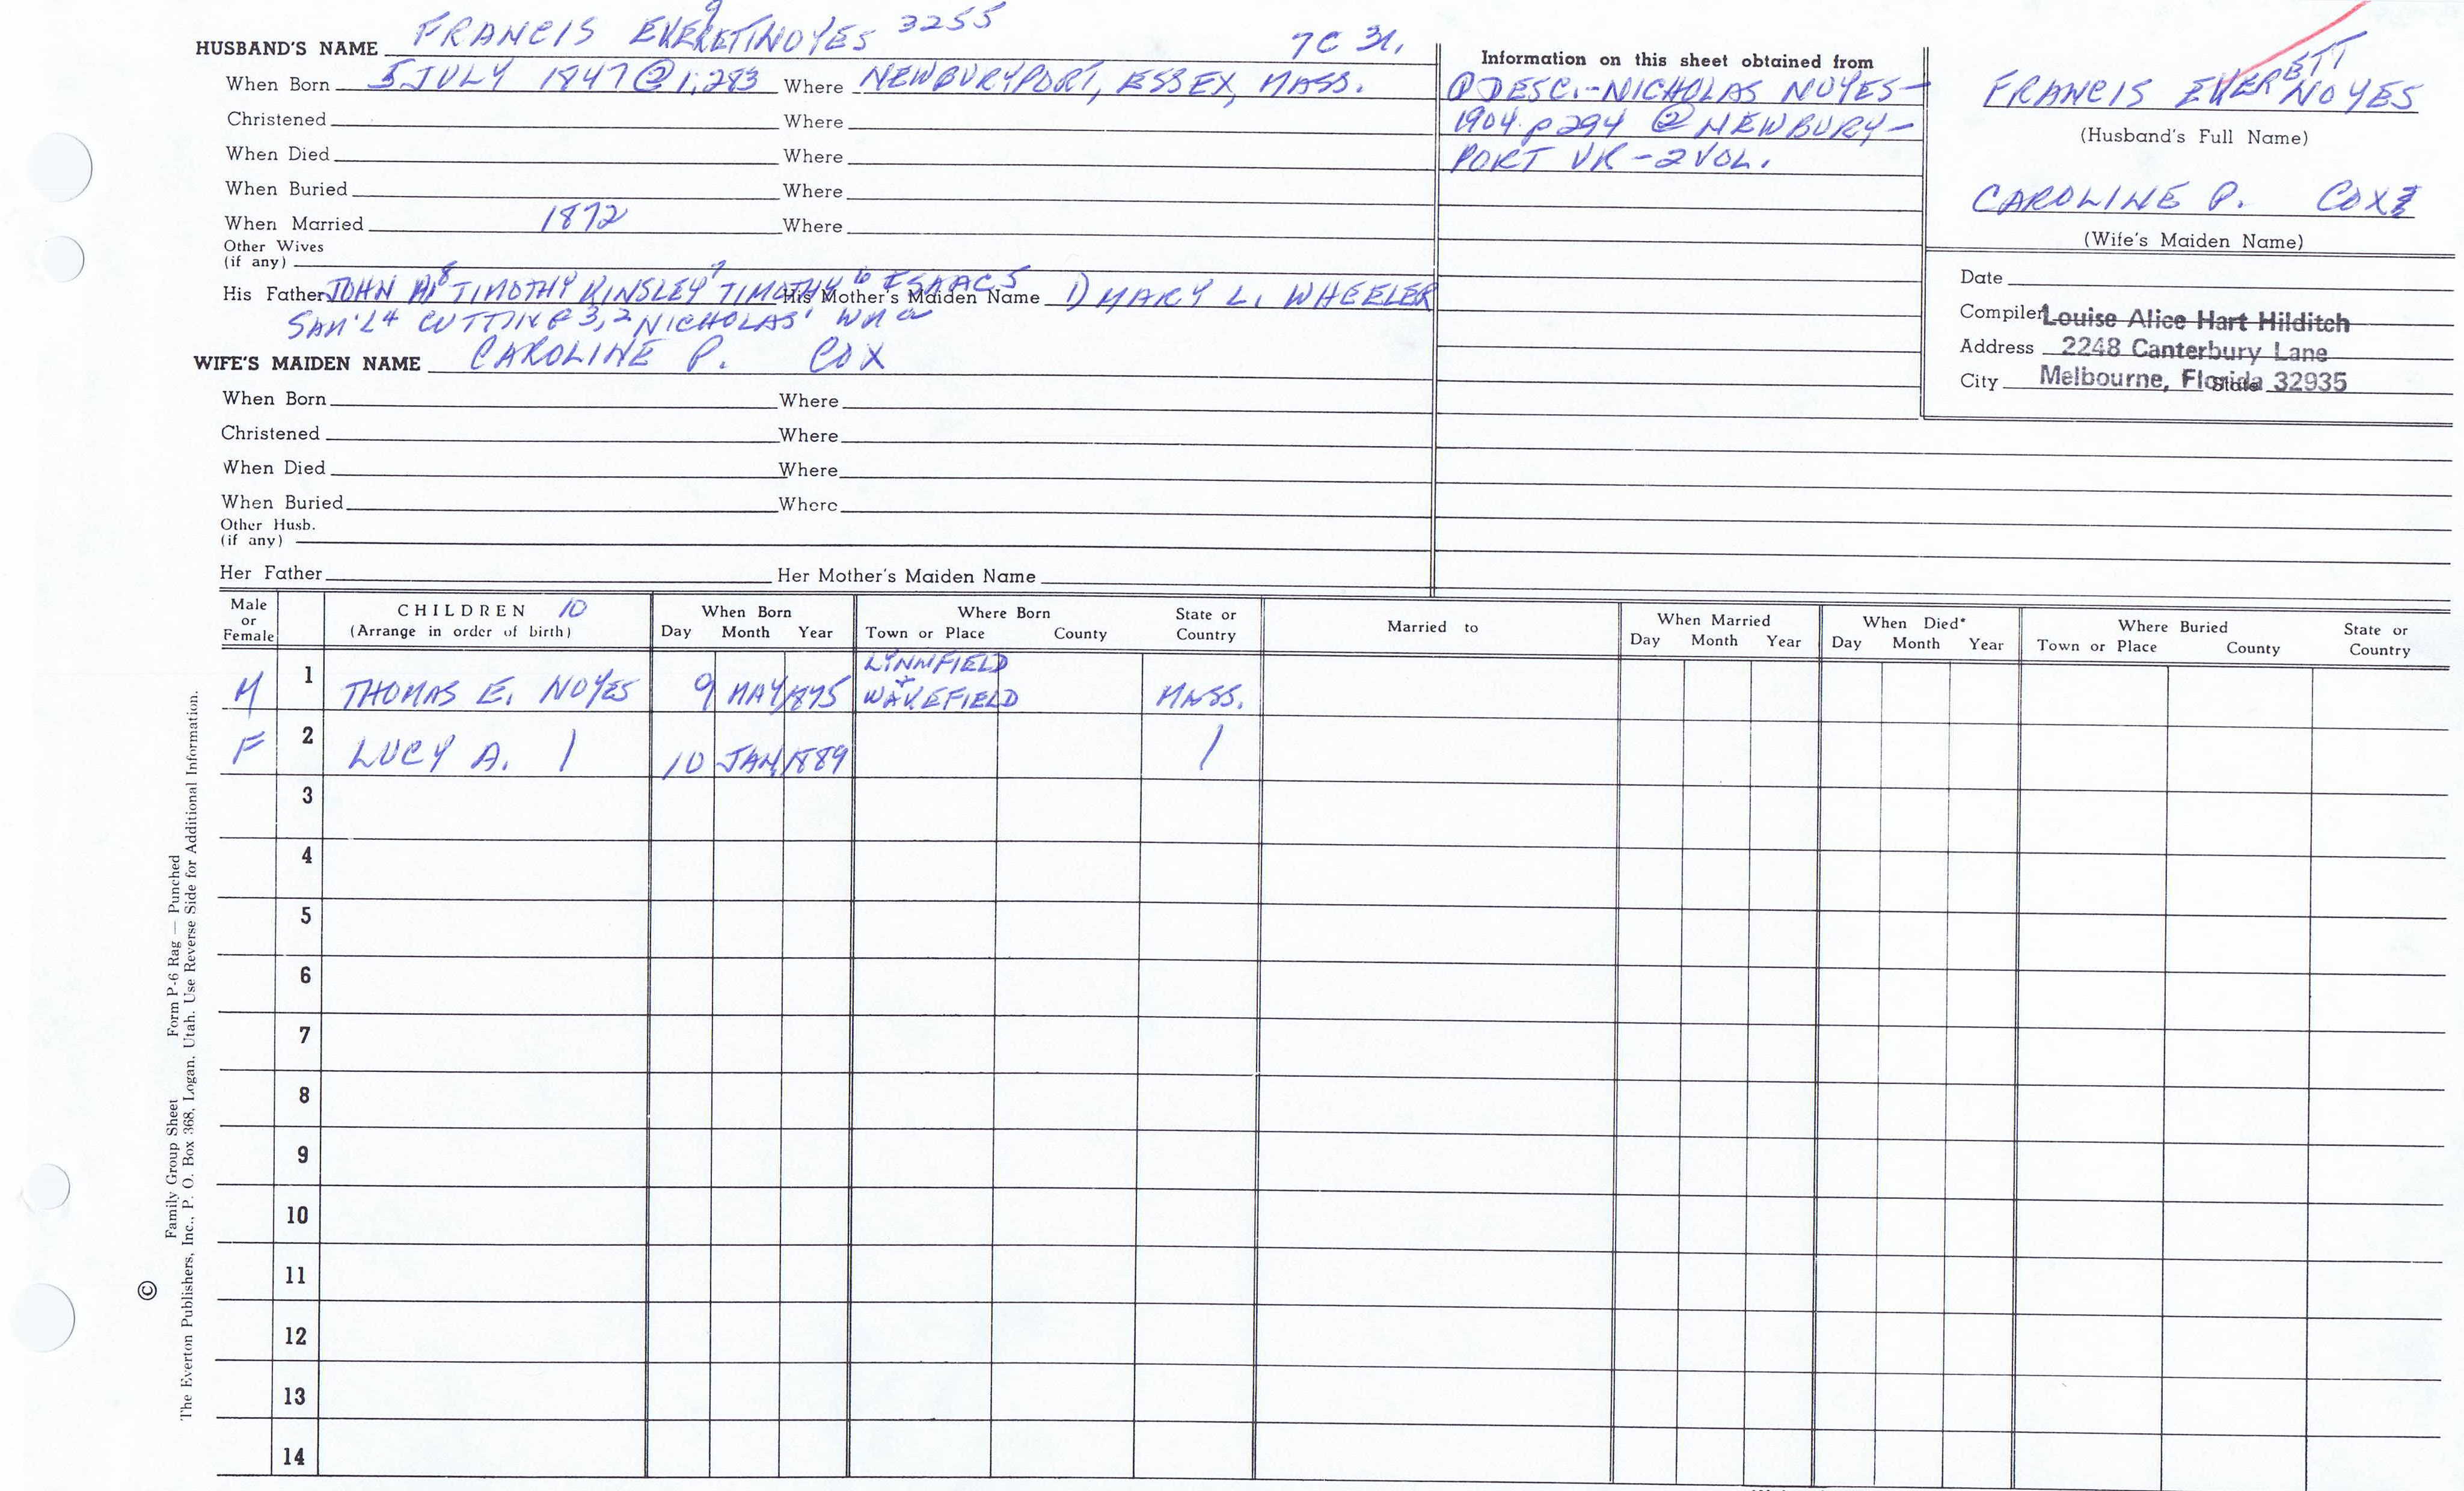 HUSBAND'S NAME FRANCIS EVERETT 9 NOYES 3255 7C 31.
When Born 5 JULY 1847 @ 1;283 Where NEWBURYPORT, ESSEX, MASS.
Christened Where
When Died Where
When Buried Where
When Married 1872 Where
Other Wives
(if any)
His Father JOHN M8 TIMOTHY KINSLEY7 TIMOTHY6 ISAAC5 His Mother's Maiden Name 1) MARY L. WHEELER
SAM'L4 CUTTING3,2 NICHOLAS1 WM
WIFE'S MAIDEN NAME CAROLINE P. COX
When Born Where
Christened Where
When Died Where
When Buried Where
Other Husb.
(if any)
Her Father Her Mother's Maiden Name
Information on this sheet obtained from
① DESC.-NICHOLAS NOYES-
1904 p294 ② NEWBURY-
PORT VR-2 VOL.
FRANCIS EVERETT NOYES
(Husband's Full Name)
CAROLINE P. COX
(Wife's Maiden Name)
Date
Compiler Louise Alice Hart Hilditch
Address 2248 Canterbury Lane
City Melbourne, Florida State 32935
Male or Female CHILDREN 10 (Arrange in order of birth) When Born Day Month Year Where Born Town or Place County State or Country Married to When Married Day Month Year When Died* Day Month Year Where Buried Town or Place County State or Country
M 1 THOMAS E. NOYES 9 MAY 1875 LYNNFIELD + WAKEFIELD MASS.
F 2 LUCY A. / 10 JAN 1889 /
3
4
5
6
7
8
9
10
11
12
13
14
Family Group Sheet Form P-6 Rag — Punched
© The Everton Publishers, Inc., P. O. Box 368, Logan, Utah. Use Reverse Side for Additional Information.